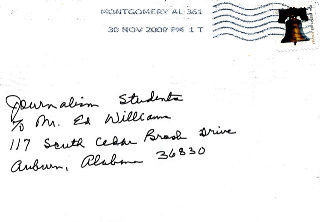 MONTGOMERY AL 361
30 NOV 2009 PM 1 T
Journalism Students
c/o Mr. Ed Williams
117 South Cedar Brook Drive
Auburn, Alabama 36830